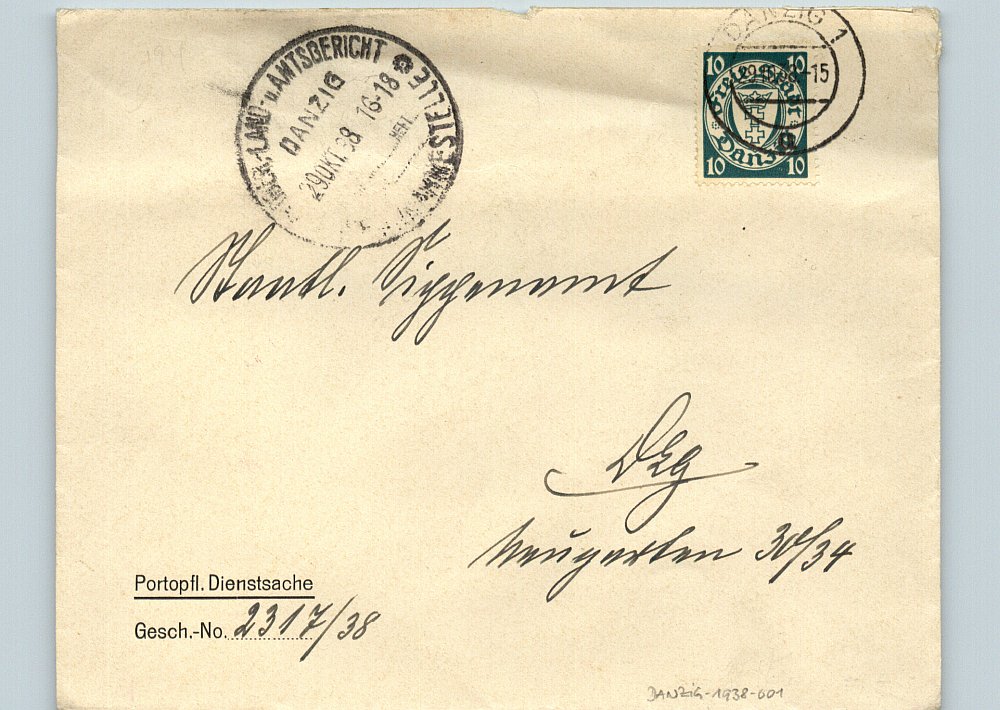 LAND- u. AMTSGERICHT
STELLE
DANZIG
29.OKT.38 16-18
DANZIG 1
-15
g
10 10
Freie Stadt
Danzig
10 10
Staatl. Sippenamt
Dzg
Neugarten 30/34
Portopfl. Dienstsache
Gesch.-No. 2317/38
DANZIG-1938-001